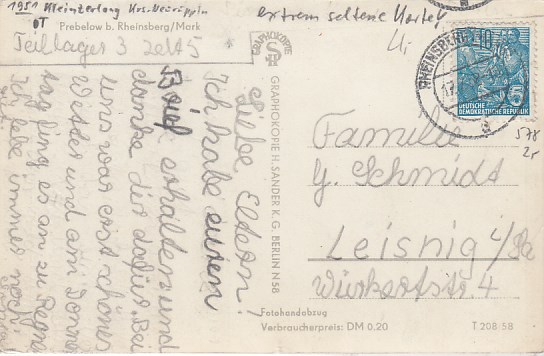 1951 Kleinzerlang Krs. Neuruppin
OT Prebelow b. Rheinsberg/Mark
extrem seltene Karte
Teillager 3 Zelt 5
Liebe Eltern!
Ich habe euren
Brief erhalten und
danke dir dafür. Bei
uns war erst schönes
Wetter und am Donners
tag fing es an zu Regne
Ich lebe immer noch
GRAPHOKOPIE
GRAPHOKOPIE H. SANDER K.G. BERLIN N 58
RHEINSBERG
17
a
10
5
DEUTSCHE
DEMOKRATISCHE REPUBLIK
578
2r
Familie
G. Schmidt
Leisnig i/Sa
Würkertstr. 4
Fotohandabzug
Verbraucherpreis: DM 0.20
T 208 58